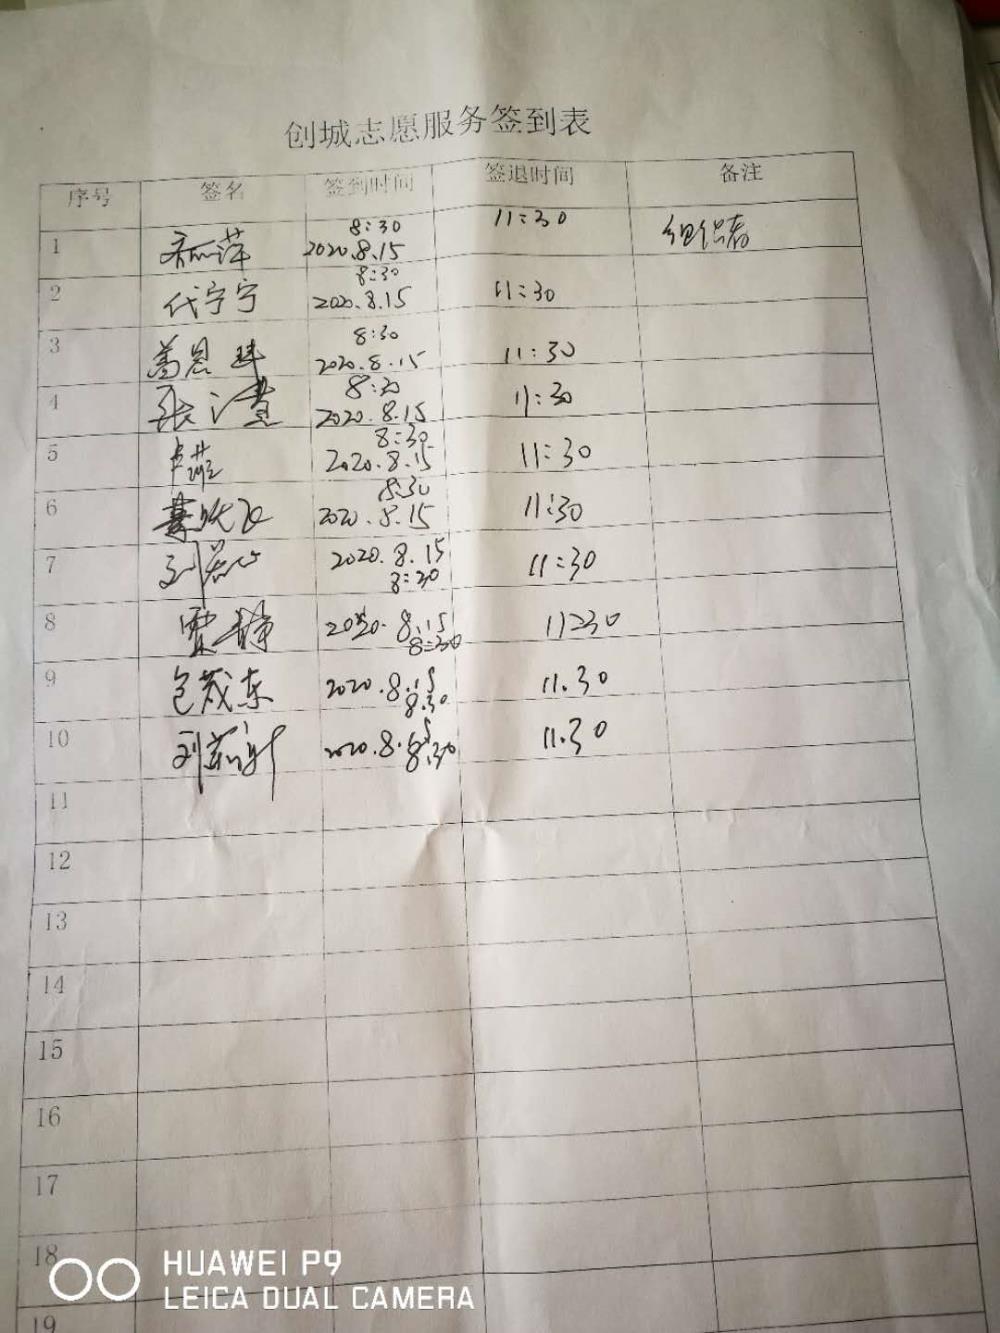 创城志愿服务签到表
序号 签名 签到时间 签退时间 备注
8:30
1 11:30 组织者
2020.8.15
8:30
2 代宁宁 11:30
2020.8.15
8:30
3 11:30
2020.8.15
8:30
4 张 11:30
2020.8.15
8:30
5 11:30
2020.8.15
8:30
6 11:30
2020.8.15
7 刘 2020.8.15 11:30
8:30
8 贾静 2020.8.15 11:30
8:30
9 包茂东 2020.8.15 11.30
8.30
10 刘 2020.8.15 11.30
8.30
11
12
13
14
15
16
17
18
19
HUAWEI P9
LEICA DUAL CAMERA